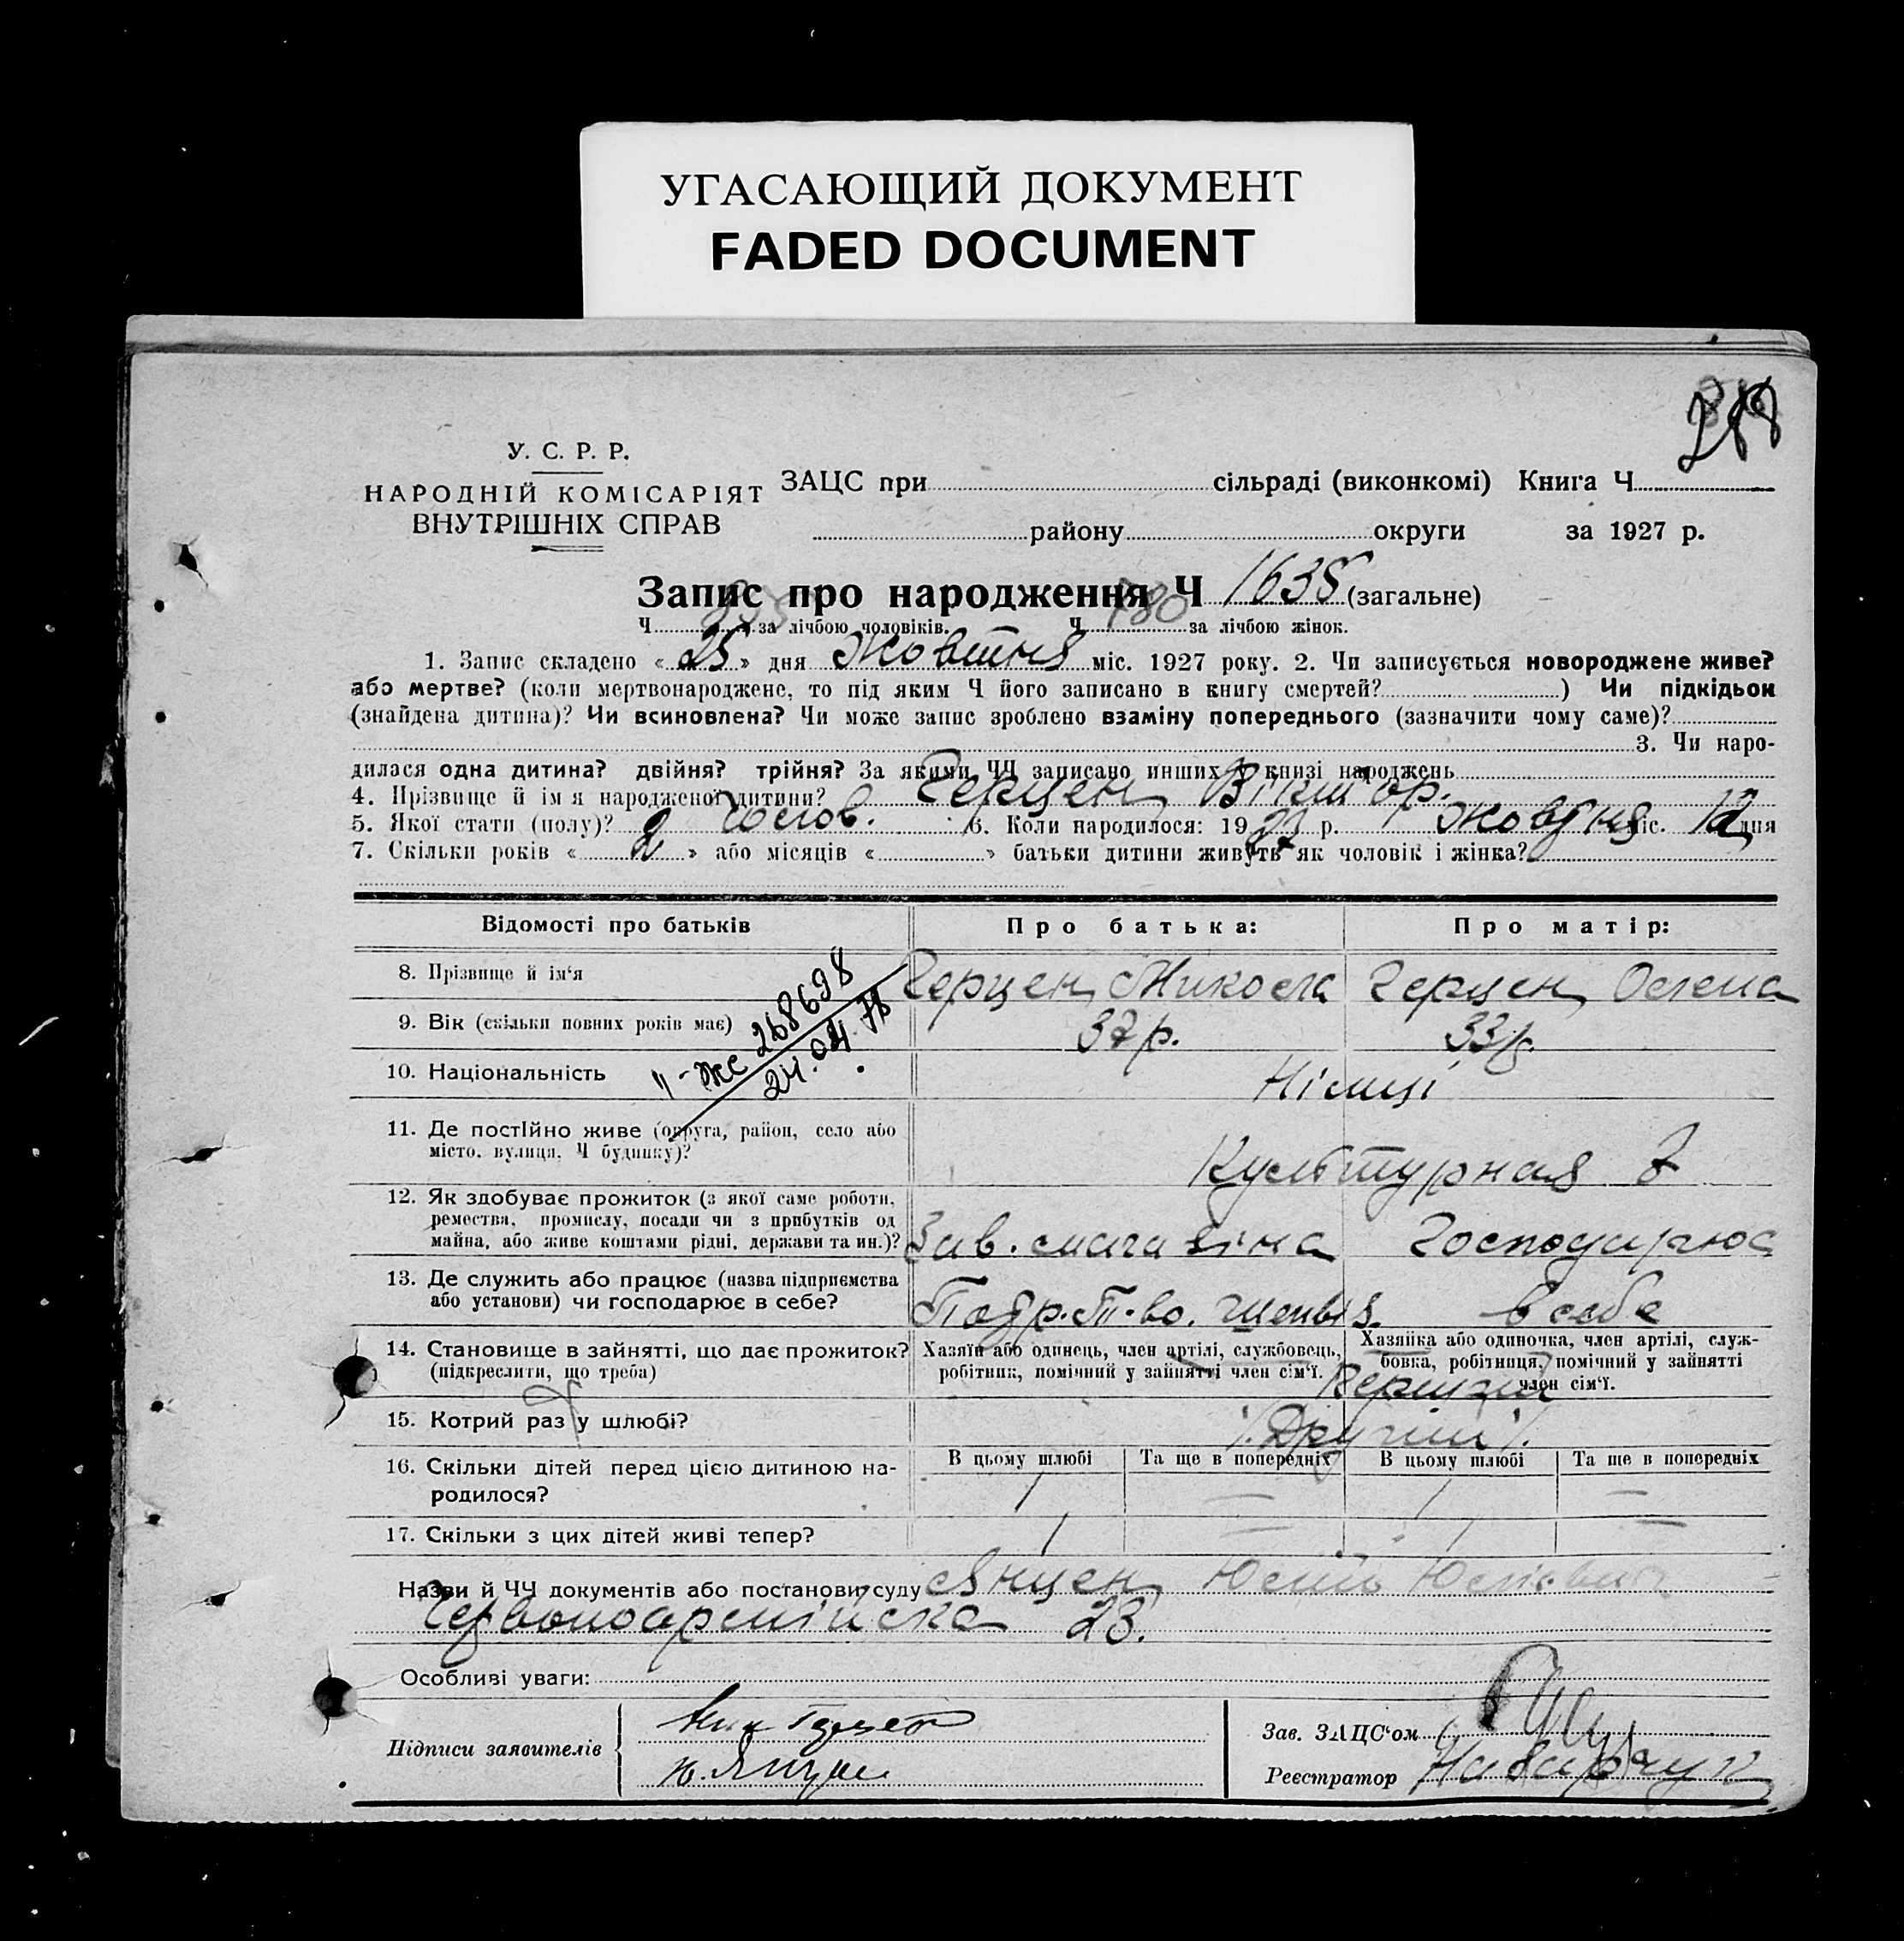 УГАСАЮЩИЙ ДОКУМЕНТ
FADED DOCUMENT
У. С. Р. Р.
НАРОДНІЙ КОМІСАРІЯТ
ВНУТРІШНІХ СПРАВ
ЗАЦС при сільраді (виконкомі) Книга Ч
району округи за 1927 р.
Запис про народження Ч 1635 (загальне)
Ч за лічбою чоловіків. Ч 780 за лічбою жінок.
1. Запис складено « 25 » дня Жовтня міс. 1927 року. 2. Чи записується новороджене живе?
або мертве? (коли мертвонароджене, то під яким Ч його записано в книгу смертей? ) Чи підкідьок
(знайдена дитина)? Чи всиновлена? Чи може запис зроблено взаміну попереднього (зазначити чому саме)?
3. Чи наро-
дилася одна дитина? двійня? трійня? За якими ЧЧ записано инших у книзі народжень
4. Прізвище й ім'я народженої дитини? Герцен Віктор.
5. Якої стати (полу)? Чолов. 6. Коли народилося: 1927 р. Жовтня міс. 12 дня
7. Скільки років « 2 » або місяців « » батьки дитини живуть як чоловік і жінка?
Відомості про батьків Про батька: Про матір:
8. Прізвище й ім'я Герцен Микола Герцен Олена
9. Вік (скільки повних років має) 37 р. 33 р.
10. Національність Німці
II-ЖС 268698
24.04.78
11. Де постійно живе (округа, район, село або
місто, вулиця, Ч будинку)? Культурная 7
12. Як здобуває прожиток (з якої саме роботи,
ремества, промислу, посади чи з прибутків од
майна, або живе коштами рідні, держави та ин.)? Зав. магазіна Господарює
13. Де служить або працює (назва підприємства
або установи) чи господарює в себе? в себе
14. Становище в зайнятті, що дає прожиток?
(підкреслити, що треба)
Хазяїн або одинець, член артілі, службовець,
робітник, помічний у зайнятті член сім'ї.
Хазяйка або одиночка, член артілі, служ-
бовка, робітниця, помічний у зайнятті
член сім'ї.
15. Котрий раз у шлюбі? Другий
16. Скільки дітей перед цією дитиною на-
родилося?
В цьому шлюбі Та ще в попередніх В цьому шлюбі Та ще в попередніх
1 — 1 —
17. Скільки з цих дітей живі тепер? 1 — 1 —
Назви й ЧЧ документів або постанови суду Янцен Юлій Юлієвич
Червоноармійска 23.
Особливі уваги:
Підписи заявителів
Ю. Янцен
Зав. ЗАЦС'ом
Реєстратор